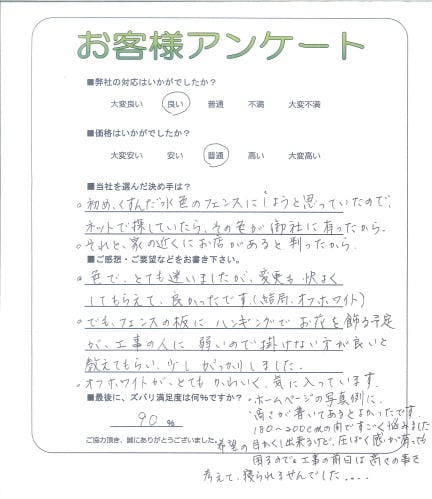 お客様アンケート
■弊社の対応はいかがでしたか?
大変良い 良い 普通 不満 大変不満
■価格はいかがでしたか?
大変安い 安い 普通 高い 大変高い
■当社を選んだ決め手は?
。初め、くすんだ水色のフェンスにしようと思っていたので、
ネットで探していたら、その色が御社に有ったから。
。それと、家の近くにお店があると判ったから。
■ご感想・ご要望などをお書き下さい。
。色で、とても迷いましたが、変更も快よく
してもらえて、良かったです。(結局、オフホワイト)
。でも、フェンスの板にハンギングでお花を飾る予定
が、工事の人に弱いので掛けない方が良いと
教えてもらい、少しがっかりしました。
。オフホワイトが、とてもかわいく、気に入っています。
■最後に、ズバリ満足度は何%ですか?
90 %
ご協力頂き、誠にありがとうございました。
。ホームページの写真例に、
高さが書いてあるとよかったです。
180~200cmの間ですごく悩みました
希望の目かくし出来るけど、圧ぱく感が有っても
困るので。工事の前日は高さの事を
考えて、寝られませんでした....